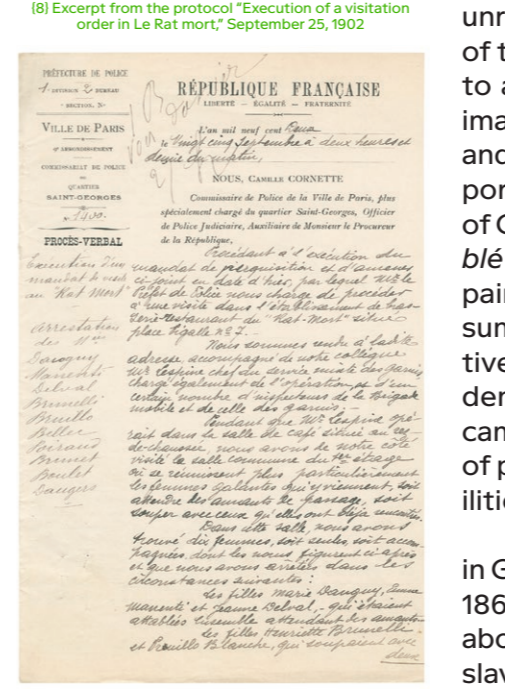 (8) Excerpt from the protocol “Execution of a visitation
order in Le Rat mort,” September 25, 1902
PRÉFECTURE DE POLICE
1re DIVISION 2e BUREAU
e SECTION. N°
VILLE DE PARIS
9e ARRONDISSEMENT
COMMISSARIAT DE POLICE
DU
QUARTIER
SAINT-GEORGES
1400.
PROCÈS-VERBAL
Exécution d'un
mandat de
au "Rat Mort"
Arrestation
des Nommées
Daugny
Manenti
Delval
Brunelli
Bellec
Brunet
Boulet
RÉPUBLIQUE FRANÇAISE
LIBERTÉ — ÉGALITÉ — FRATERNITÉ
L'an mil neuf cent deux
le Vingt cinq Septembre à deux heures et
demie du matin,
NOUS, CAMILLE CORNETTE
Commissaire de Police de la Ville de Paris, plus
spécialement chargé du quartier Saint-Georges, Officier
de Police Judiciaire, Auxiliaire de Monsieur le Procureur
de la République,
Procédant à l'exécution du
mandat de perquisition et d'amener
ci-joint en date d'hier, par lequel Mr le
Préfet de Police nous charge de procéder
à une visite dans l'établissement de
restaurant du "Rat-Mort" situé
place Pigalle No 7.
Nous sommes rendu à ladite
adresse, accompagné de notre collègue
Mr Lespine chef du service mixte des garnis
chargé également de l'opération, et d'un
certain nombre d'inspecteurs de la Brigade
mobile et de celle des garnis —
Pendant que Mr Lespine opé-
rait dans la salle de café située au rez-
de-chaussée, nous avons de notre côté
visité la salle commune du 1er étage
où se réunissent plus particulièrement
les femmes galantes qui y viennent, soit
attendre des amants de passage, soit
souper avec ceux qu'elles ont déjà rencontrés.
Dans cette salle, nous avons
trouvé dix femmes, soit seules soit accom-
pagnées, dont les noms figurent ci-après
et que nous avons arrêtées dans les
circonstances suivantes :
Les filles Marie Daugny, Emma
Manenti et Jeanne Delval, qui étaient
attablées ensemble attendant des amants
Les filles Henriette Brunelli
et Blanche, qui soupaient avec
deux
unr
of t
to a
ima
and
por
of G
blé
pain
sum
tive
der
cam
of p
ilitie
in G
186
abo
slav